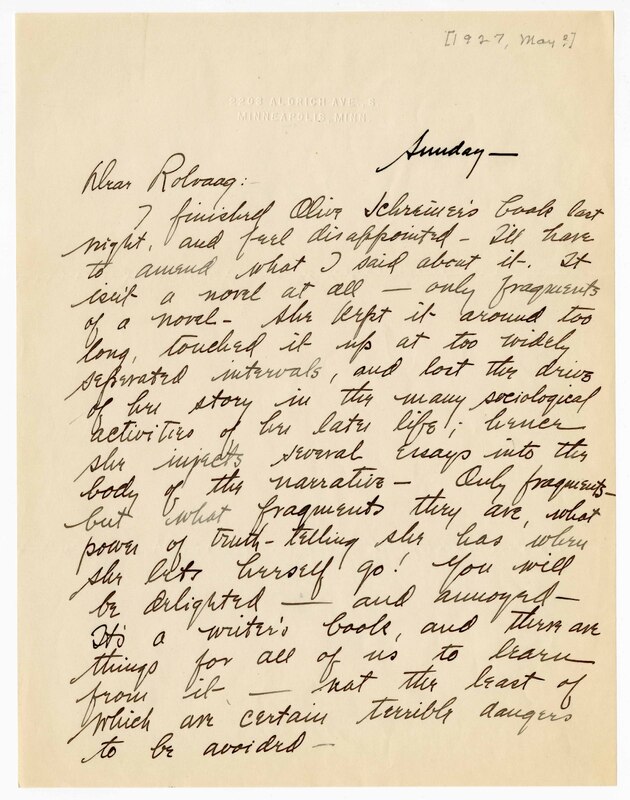 [1927, May?]
2203 ALDRICH AVE. S.
MINNEAPOLIS, MINN.
Sunday—
Dear Rolvaag:-
I finished Olive Schreiner's book last
night, and feel disappointed - I'll have
to amend what I said about it. It
isn't a novel at all — only fragments
of a novel - She kept it around too
long, touched it up at too widely
seperated intervals, and lost the drive
of her story in the many sociological
activities of her later life; hence
she injects several essays into the
body of the narrative — Only fragments—
but what fragments they are, what
power of truth-telling she has when
she lets herself go! You will
be delighted — and annoyed—
It's a writer's book, and there are
things for all of us to learn
from it — not the least of
which are certain terrible dangers
to be avoided —